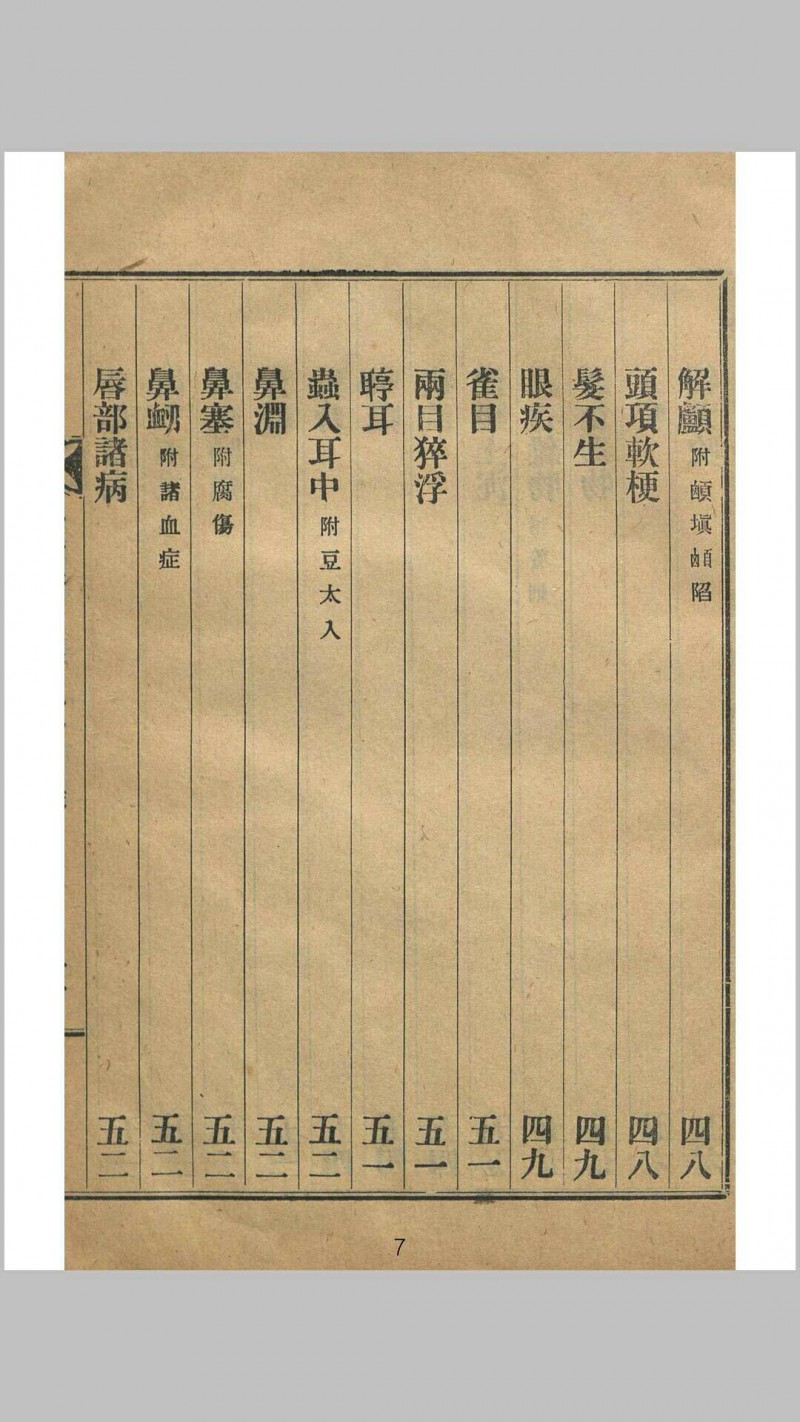 解顱 附顖塡顖陷 四八
頭項軟梗 四八
髮不生 四九
眼疾 四九
雀目 五一
兩目猝浮 五一
聤耳 五一
蟲入耳中 附豆太入 五二
鼻淵 五二
鼻塞 附腐傷 五二
鼻衂 附諸血症 五二
唇部諸病 五二
7